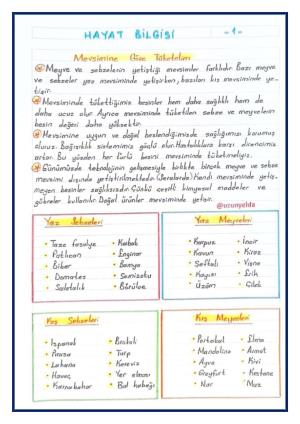 HAYAT BİLGİSİ
-1-
Mevsimine Göre Tüketelim
Meyve ve sebzelerin yetiştiği mevsimler farklıdır. Bazı meyve
ve sebzeler yaz mevsiminde yetişirken, bazıları kış mevsiminde ye-
tişir.
Mevsiminde tükettiğimiz besinler hem daha sağlıklı hem de
daha ucuz olur. Ayrıca mevsiminde tüketilen sebze ve meyvelerin
besin değeri daha yüksektir.
Mevsimine uygun ve doğal beslendiğimizde sağlığımızı korumuş
oluruz. Bağışıklık sistemimiz güçlü olur. Hastalıklara karşı direncimiz
artar. Bu yüzden her türlü besini mevsiminde tüketmeliyiz.
Günümüzde teknolojinin gelişmesiyle birlikte birçok meyve ve sebze
mevsimi dışında yetiştirilmektedir. (Seralarda) Kendi mevsiminde yetiş-
meyen besinler sağlıksızdır. Çünkü çeşitli kimyasal maddeler ve
gübreler kullanılır. Doğal ürünler mevsiminde yetişir.
@uzunyelda
Yaz Sebzeleri
Taze fasulye
Patlıcan
Biber
Domates
Salatalık
Kabak
Enginar
Bamya
Semizotu
Börülce
Yaz Meyveleri
Karpuz
Kavun
Şeftali
Kayısı
Üzüm
İncir
Kiraz
Vişne
Erik
Çilek
Kış Sebzeleri
Ispanak
Pırasa
Lahana
Havuç
Karnabahar
Brokoli
Turp
Kereviz
Yer elması
Bal kabağı
Kış Meyveleri
Portakal
Mandalina
Ayva
Greyfurt
Nar
Elma
Armut
Kivi
Kestane
Muz